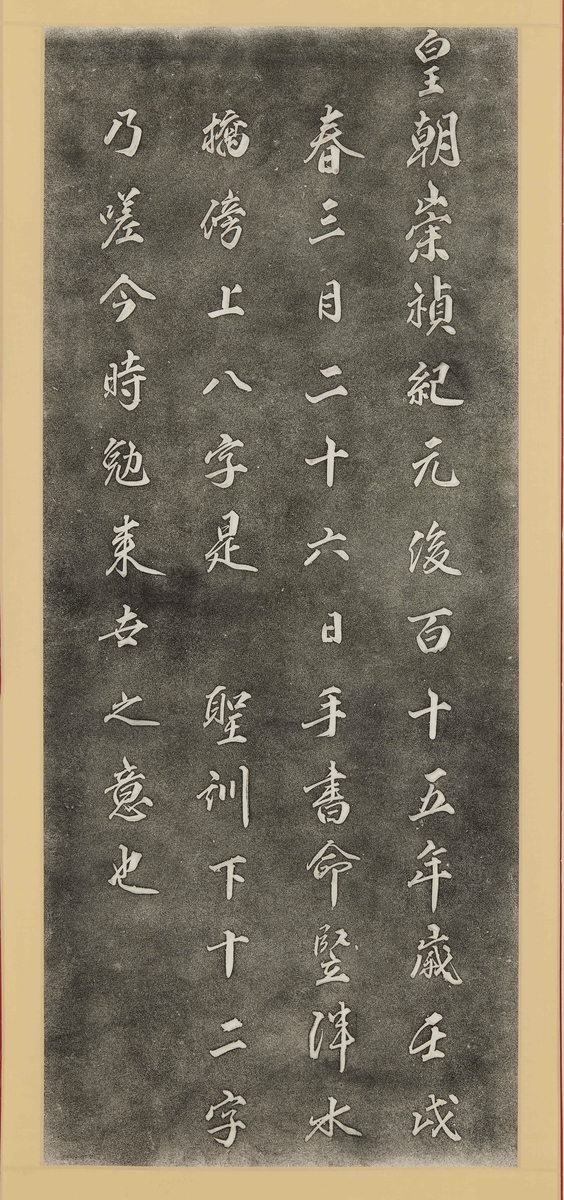 皇朝崇禎紀元後百十五年歲壬戌
春三月二十六日手書命竪泮水
橋傍上八字是 聖訓下十二字
乃嗟今時勉來世之意也